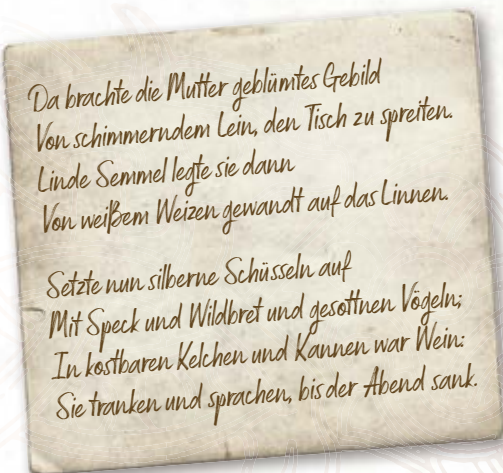 Da brachte die Mutter geblümtes Gebild
Von schimmerndem Lein, den Tisch zu spreiten.
Linde Semmel legte sie dann
Von weißem Weizen gewandt auf das Linnen.
Setzte nun silberne Schüsseln auf
Mit Speck und Wildbret und gesottnen Vögeln;
In kostbaren Kelchen und Kannen war Wein:
Sie tranken und sprachen, bis der Abend sank.